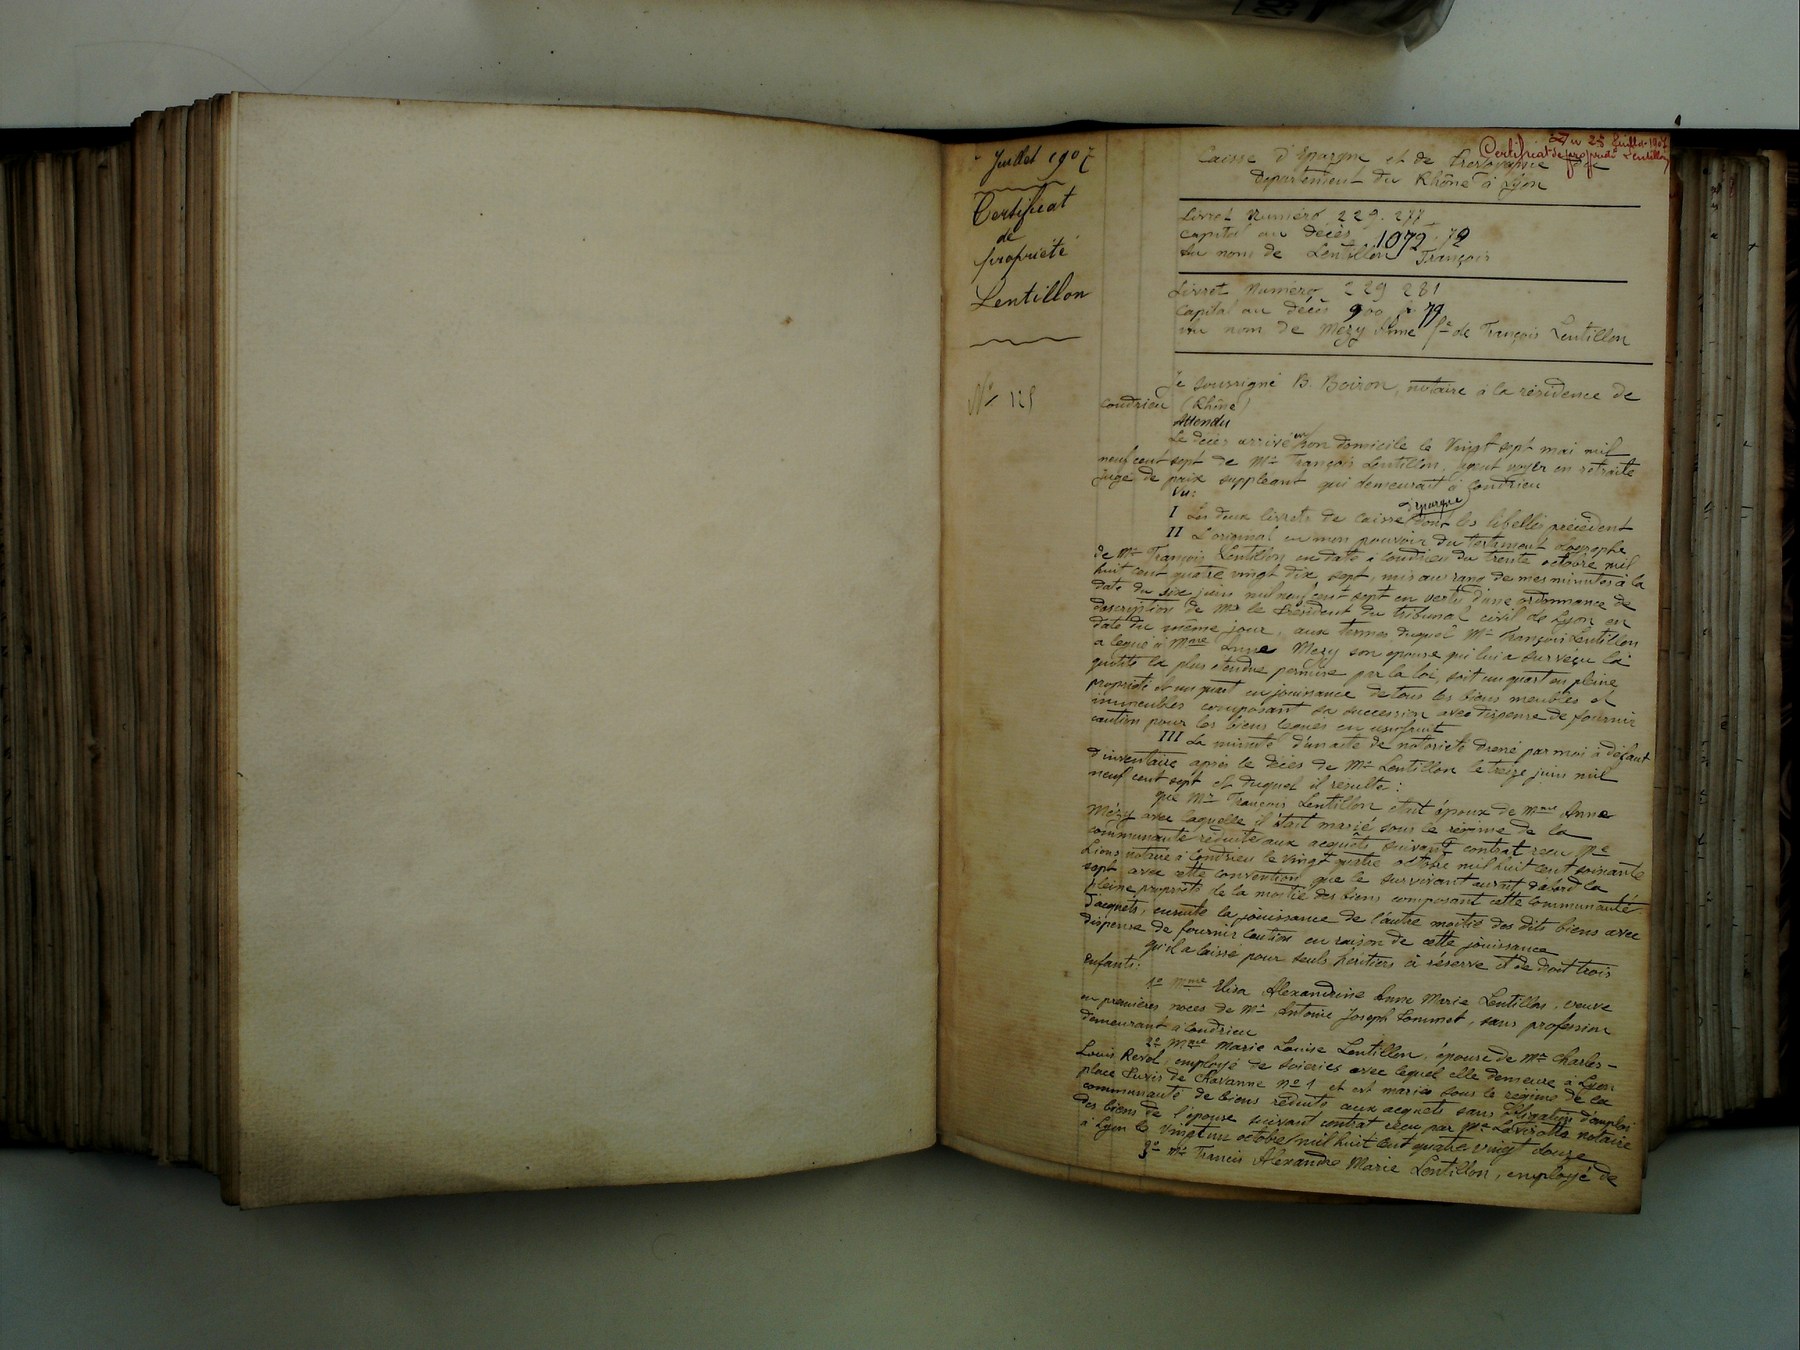 Du 25 Juillet 1907
Certificat de propriété Lentillon
Juillet 1907
Certificat
de
propriété
Lentillon
N° 125
Caisse d'Epargne et de Prévoyance du
département du Rhône à Lyon
Livret Numéro 229.277
Capital au décès 1072.72
au nom de Lentillon François
Livret Numéro 229 281
Capital au décès 900 f. 79
au nom de Mézy Anne fe de François Lentillon
Je soussigné B. Boiron, notaire à la résidence de
Condrieu (Rhône)
Attendu
Le décès arrivé en son domicile le vingt sept mai mil
neuf cent sept de Mr François Lentillon, agent voyer en retraite
juge de paix suppléant qui demeurait à Condrieu
Vu:
I Les deux livrets de caisse d'épargne dont les libellés précèdent
II L'original en mon pouvoir du testament olographe
de Mr François Lentillon en date à Condrieu du trente octobre mil
huit cent quatre vingt dix sept, mis au rang de mes minutes à la
date du six juin mil neuf cent sept en vertu d'une ordonnance de
description de Mr le Président du tribunal civil de Lyon en
date du même jour, aux termes duquel Mr François Lentillon
a légué à Mme Anne Mezy son épouse qui lui a survécu la
quotité la plus étendue permise par la loi, soit un quart en pleine
propriété et un quart en jouissance de tous les biens meubles et
immeubles composant sa succession avec dispense de fournir
caution pour les biens légués en usufruit
III La minute d'un acte de notoriété dressé par moi à défaut
d'inventaire après le décès de Mr Lentillon le treize juin mil
neuf cent sept et duquel il résulte:
que Mr François Lentillon était époux de Mme Anne
Mézy avec laquelle il était marié sous le régime de la
communauté réduite aux acquêts suivant contrat reçu Me
Lions notaire à Condrieu le vingt quatre octobre mil huit cent soixante
sept avec cette convention que le survivant aurait d'abord la
pleine propriété de la moitié des biens composant cette communauté
d'acquêts, ensuite la jouissance de l'autre moitié des dits biens avec
dispense de fournir caution en raison de cette jouissance
qu'il a laissé pour seuls héritiers à réserve et de droit trois
enfants:
1° Mme Elisa Alexandrine Anne Marie Lentillon, veuve
en premières noces de Mr Antoine Joseph Sommet, sans profession
demeurant à Condrieu
2° Mme Marie Louise Lentillon, épouse de Mr Charles-
Louis Revol, employé de soieries avec lequel elle demeure à Lyon
place de Chavanne n° 1 et est mariée sous le régime de la
communauté de biens réduite aux acquets sans obligation d'emploi
des biens de l'épouse suivant contrat reçu par Me Lavirotte notaire
à Lyon le vingt un octobre mil huit cent quatre vingt douze
3° Mr Francis Alexandre Marie Lentillon, employé de